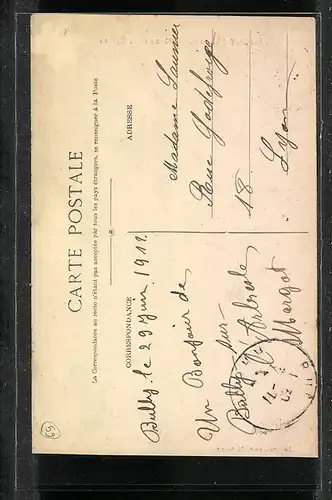 CARTE POSTALE
La Correspondance au recto n'étant pas acceptée par tous les pays étrangers, se renseigner à la Poste
CORRESPONDANCE
ADRESSE
Bully, le 29 juin 1912
Un Bonjour de
Bully-sur-
l'Arbresle
Margot
Madame Saunier
Rue Godefroy
18
Lyon
69